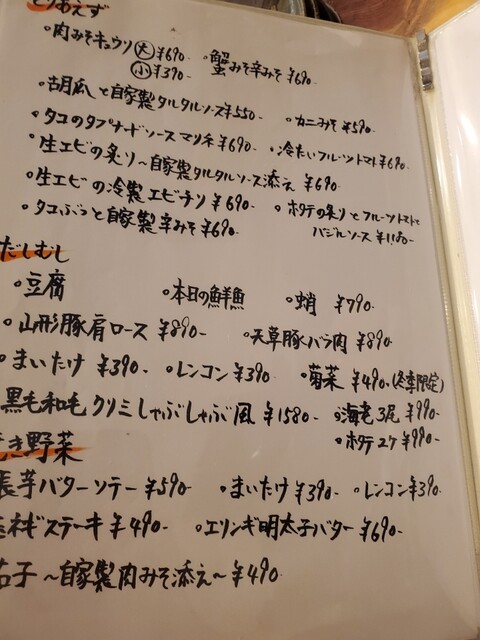 とりあえず
・肉みそキュウリ 大 ¥690- ・蟹みそ辛みそ ¥690-
小 ¥390-
・胡瓜と自家製タルタルソース ¥550- ・カニみそ ¥590-
・タコのタプナードソースマリネ ¥690- ・冷たいフルーツトマト ¥690-
・生エビの炙り~自家製タルタルソース添え ¥690-
・生エビの冷製エビチリ ¥690- ・ホタテの炙りとフルーツトマトと
・タコぶつと自家製辛みそ ¥690- バジルソース ¥1180-
だしむし
・豆腐 ・本日の鮮魚 ・蛸 ¥790-
・山形豚肩ロース ¥890- ・天草豚バラ肉 ¥890-
・まいたけ ¥390- ・レンコン ¥390- ・菊菜 ¥490-(冬季限定)
黒毛和毛クリミしゃぶしゃぶ風 ¥1580- ・海老3尾 ¥990-
・ホタテ2ケ ¥990-
き野菜
長芋バターソテー ¥590- ・まいたけ ¥390- ・レンコン ¥390-
ネギステーキ ¥490- ・エリンギ明太子バター ¥690-
茄子~自家製肉みそ添え~ ¥490-